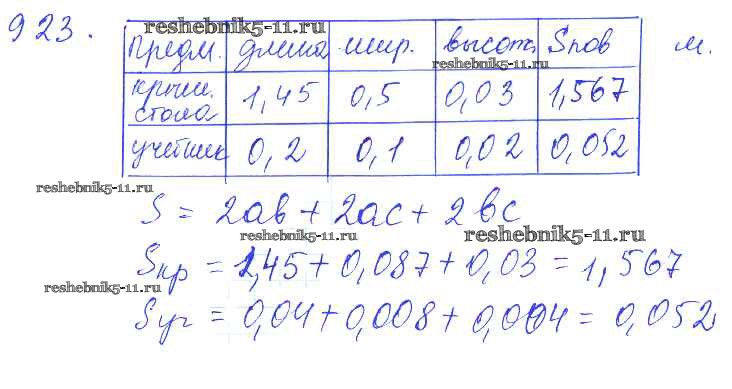 923.
reshebnik5-11.ru
Предм. длина шир. высота Sпов м.
reshebnik5-11.ru
крыш. стола 1,45 0,5 0,03 1,567
учебник 0,2 0,1 0,02 0,052
reshebnik5-11.ru
S = 2ab + 2ac + 2bc
reshebnik5-11.ru
reshebnik5-11.ru
Sкр = 1,45 + 0,087 + 0,03 = 1,567
reshebnik5-11.ru
Sуч = 0,04 + 0,008 + 0,004 = 0,052